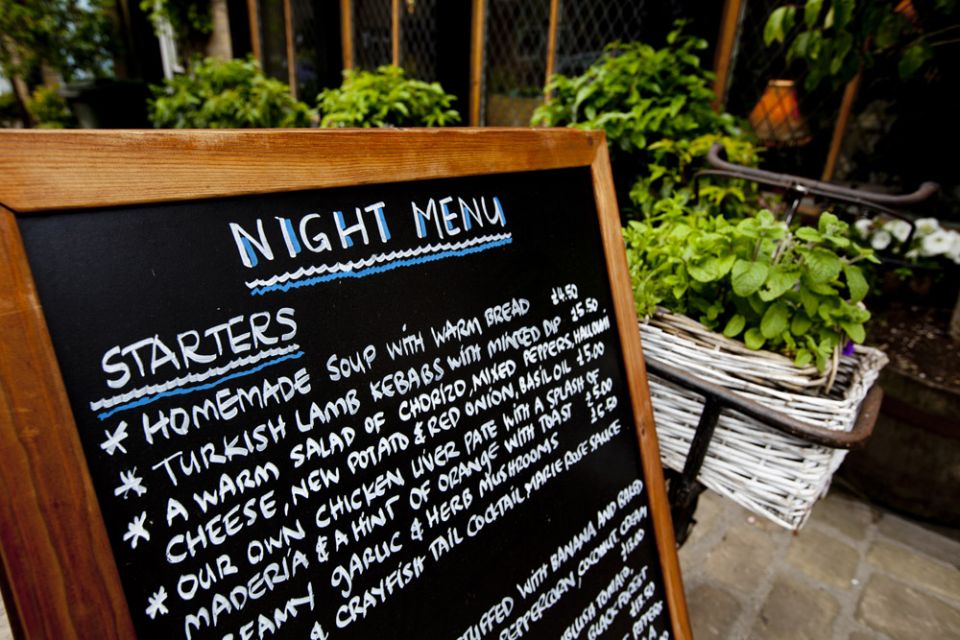 NIGHT MENU
STARTERS
* HOMEMADE SOUP WITH WARM BREAD £4.50
* TURKISH LAMB KEBABS WITH MINTED DIP £5.50
* A WARM SALAD OF CHORIZO, MIXED PEPPERS, HALLOUMI
CHEESE, NEW POTATO & RED ONION, BASIL OIL £5.00
* OUR OWN CHICKEN LIVER PATE WITH A SPLASH OF
MADERIA & A HINT OF ORANGE WITH TOAST £5.00
GARLIC & HERB MUSHROOMS £5.50
CRAYFISH TAIL COCKTAIL MARIE ROSE SAUCE
WITH BANANA AND BAKED
PEPPERCORN, COCONUT CREAM
TOMATO,
BLACK FOREST
PEPPER